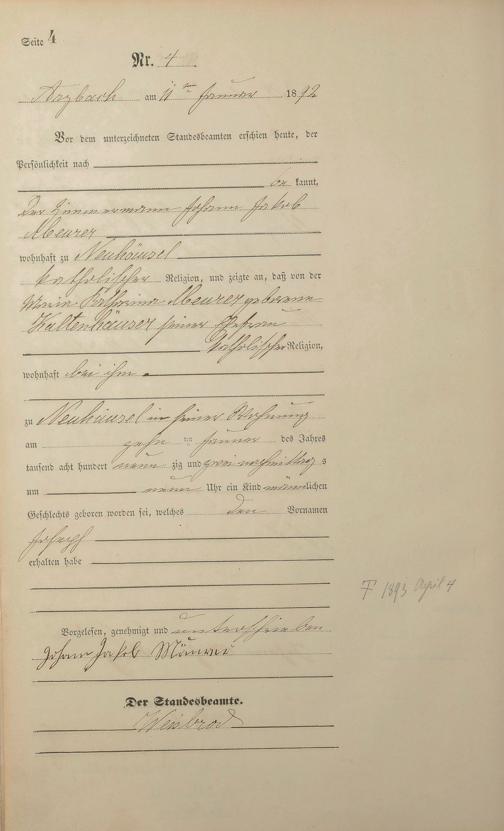 Seite 4
Nr. 4.
Arzbach am 11 ten Januar 1892
Vor dem unterzeichneten Standesbeamten erschien heute, der
Persönlichkeit nach
be kannt,
Der Zimmermann Johann Jakob
Meurer
wohnhaft zu Neuhäusel
katholischer Religion, und zeigte an, daß von der
Maria Katharina Meurer geborene
Kaltenhäuser seiner Ehefrau
katholischer Religion,
wohnhaft bei ihm
zu Neuhäusel in seiner Wohnung
am zehn ten Januar des Jahres
tausend acht hundert neun zig und zwei nachmittag s
um neun Uhr ein Kind männlichen
Geschlechts geboren worden sei, welches den Vornamen
Joseph
erhalten habe
1893 April 4
Vorgelesen, genehmigt und unterschrieben
Johann Jakob
Der Standesbeamte.
Weisbrod